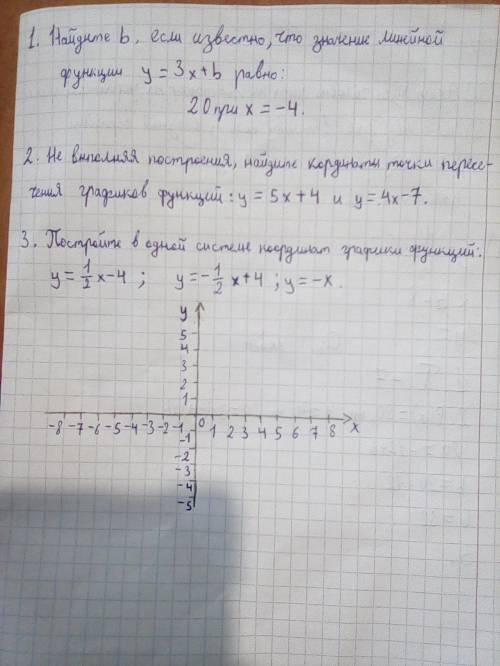 1. Найдите b, если известно, что значение линейной
функции y = 3x + b равно:
20 при x = -4.
2. Не выполняя построения, найдите кординаты точки пересе-
чения графиков функций: y = 5x + 4 и y = 4x - 7.
3. Постройте в одной системе координат графики функций:
y = 1/2 x - 4 ; y = - 1/2 x + 4 ; y = -x.
y
5
4
3
2
1
-8 -7 -6 -5 -4 -3 -2 -1 0 1 2 3 4 5 6 7 8 x
-1
-2
-3
-4
-5